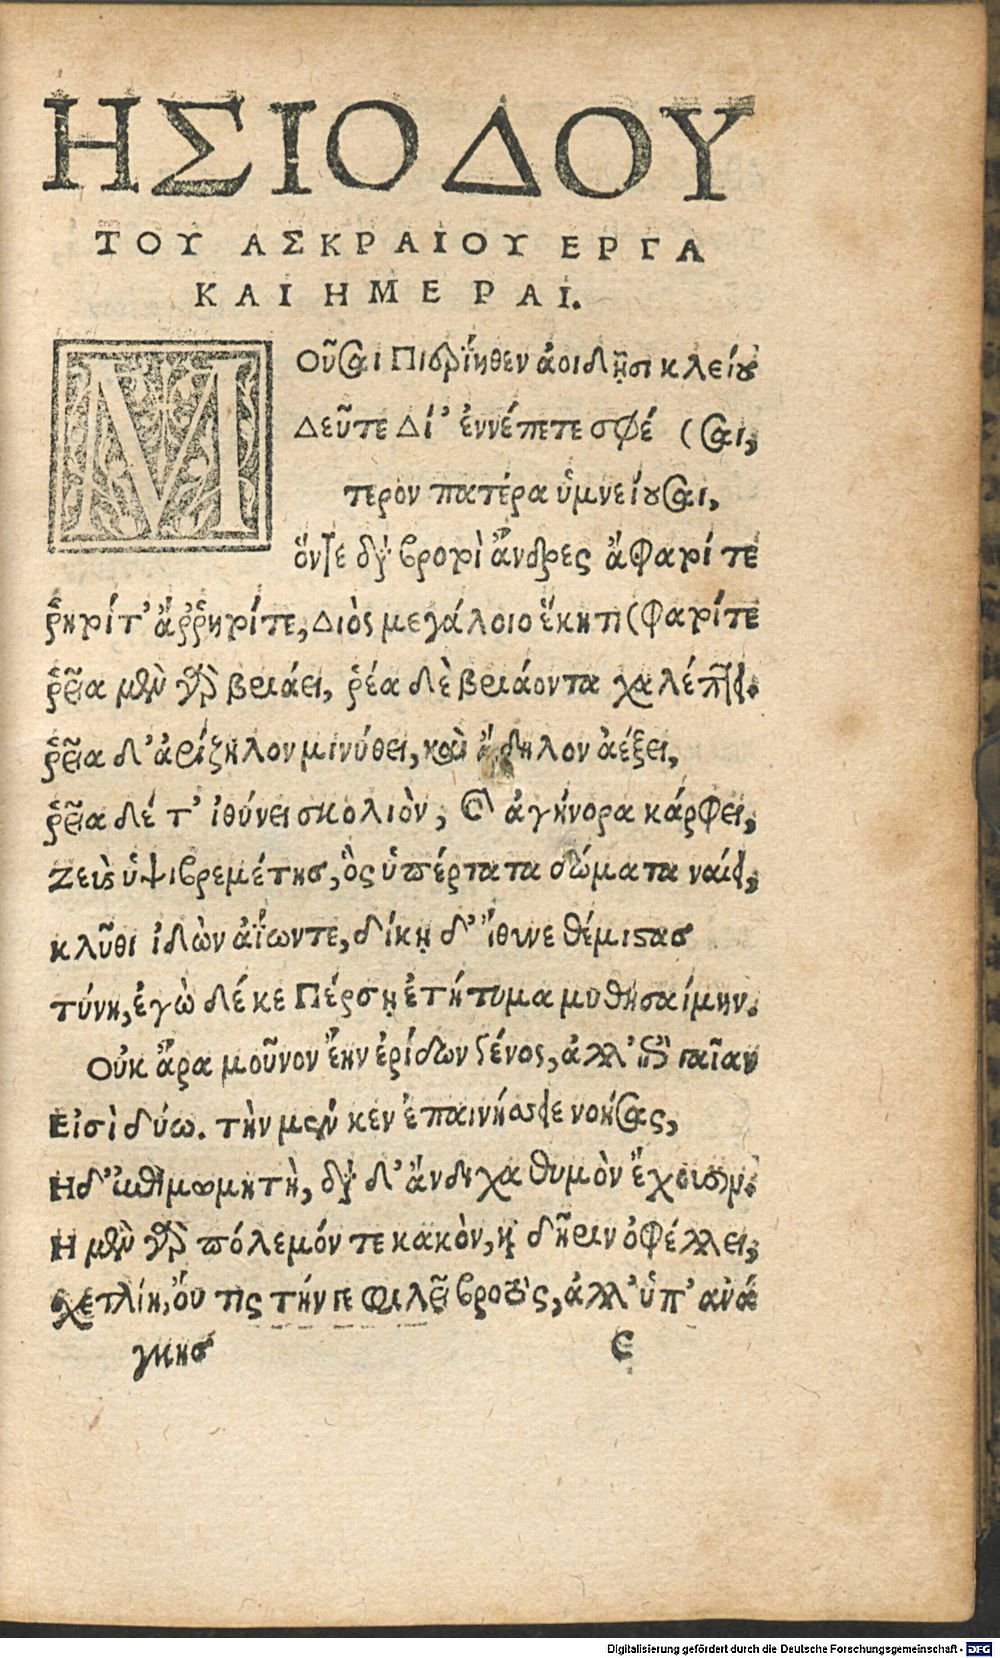 ΗΣΙΟΔΟΥ
ΤΟΥ ΑΣΚΡΑΙΟΥ ΕΡΓΑ
ΚΑΙ ΗΜΕΡΑΙ.
ΜΟῦσαι Πιερίηθεν ἀοιδῇσι κλείου
Δεῦτε Δί' ἐννέπετε σφέ (σαι,
τερον πατέρα ὑμνείουσαι,
ὅντε διὰ βροτοὶ ἄνδρες ἄφατοί τε
ῥητοί τ' ἄῤῥητοίτε, Διὸς μεγάλοιο ἕκητι (φατοίτε
ῥεῖα μὲν γὰρ βριάει, ῥέα δὲ βριάοντα χαλέπτει.
ῥεῖα δ' ἀρίζηλον μινύθει, καὶ ἄδηλον ἀέξει,
ῥεῖα δέ τ' ἰθύνει σκολιὸν, καὶ ἀγήνορα κάρφει,
Ζεὺς ὑψιβρεμέτης, ὃς ὑπέρτατα δώματα ναίει,
κλῦθι ἰδὼν ἀΐωντε, δίκῃ δ' ἴθυνε θέμιστας
τύνη, ἐγὼ δέ κε Πέρσῃ ἐτήτυμα μυθησαίμην.
Οὐκ ἄρα μοῦνον ἔην ἐρίδων γένος, ἀλλ' ἐπὶ γαῖαν
Εἰσὶ δύω. τὴν μὲν κεν ἐπαινήσειε νοήσας,
Η δ' ἐπιμωμητὴ, διὰ δ' ἄνδιχα θυμὸν ἔχουσιν.
Η μὲν γὰρ πόλεμόν τε κακὸν, καὶ δῆριν ὀφέλλει,
χετλίη, ὄυ τις τήν γε φιλεῖ βροτὸς, ἀλλ' ὑπ' ἀνά
γκης C
Digitalisierung gefördert durch die Deutsche Forschungsgemeinschaft - DFG